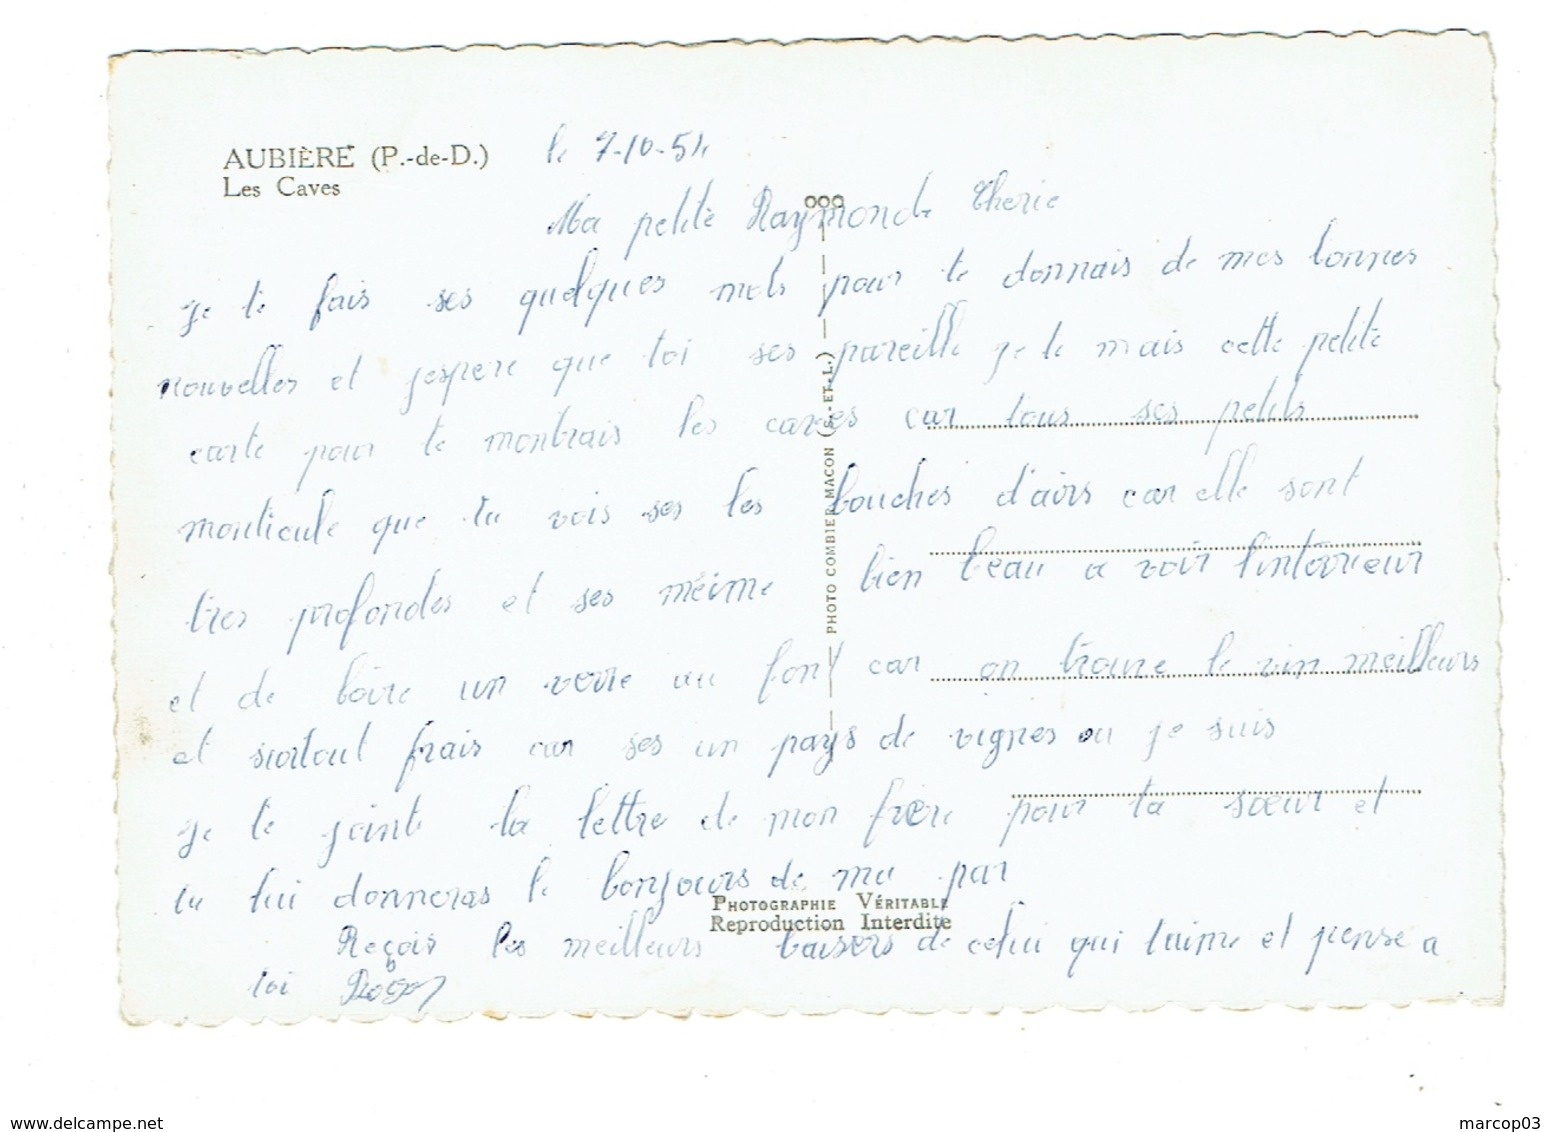 AUBIÈRE (P.-de-D.)
Les Caves
le 7-10-54
Ma petite Raymonde Cherie
je te fais ses quelques mots pour te donnais de mes bonnes
nouvelles et jespere que toi ses pareille je te mais cette petite
carte pour te montrais les caves car tous ses petits
monticule que tu vois ses les bouches d'airs car elle sont
tres profondes et ses méime bien beau a voir l'interrieur
et de boire un verre au font car on trouve le vin meilleurs
et surtout frais car ses un pays de vignes ou je suis
je te jointe la lettre de mon frère pour ta sœur et
tu lui donneras le bonjours de ma par
Reçois les meilleurs baisers de celui qui t'aime et pense a
toi Roger
PHOTO COMBIER MACON (S.-ET-L.)
PHOTOGRAPHIE VÉRITABLE
Reproduction Interdite
www.delcampe.net
marcop03